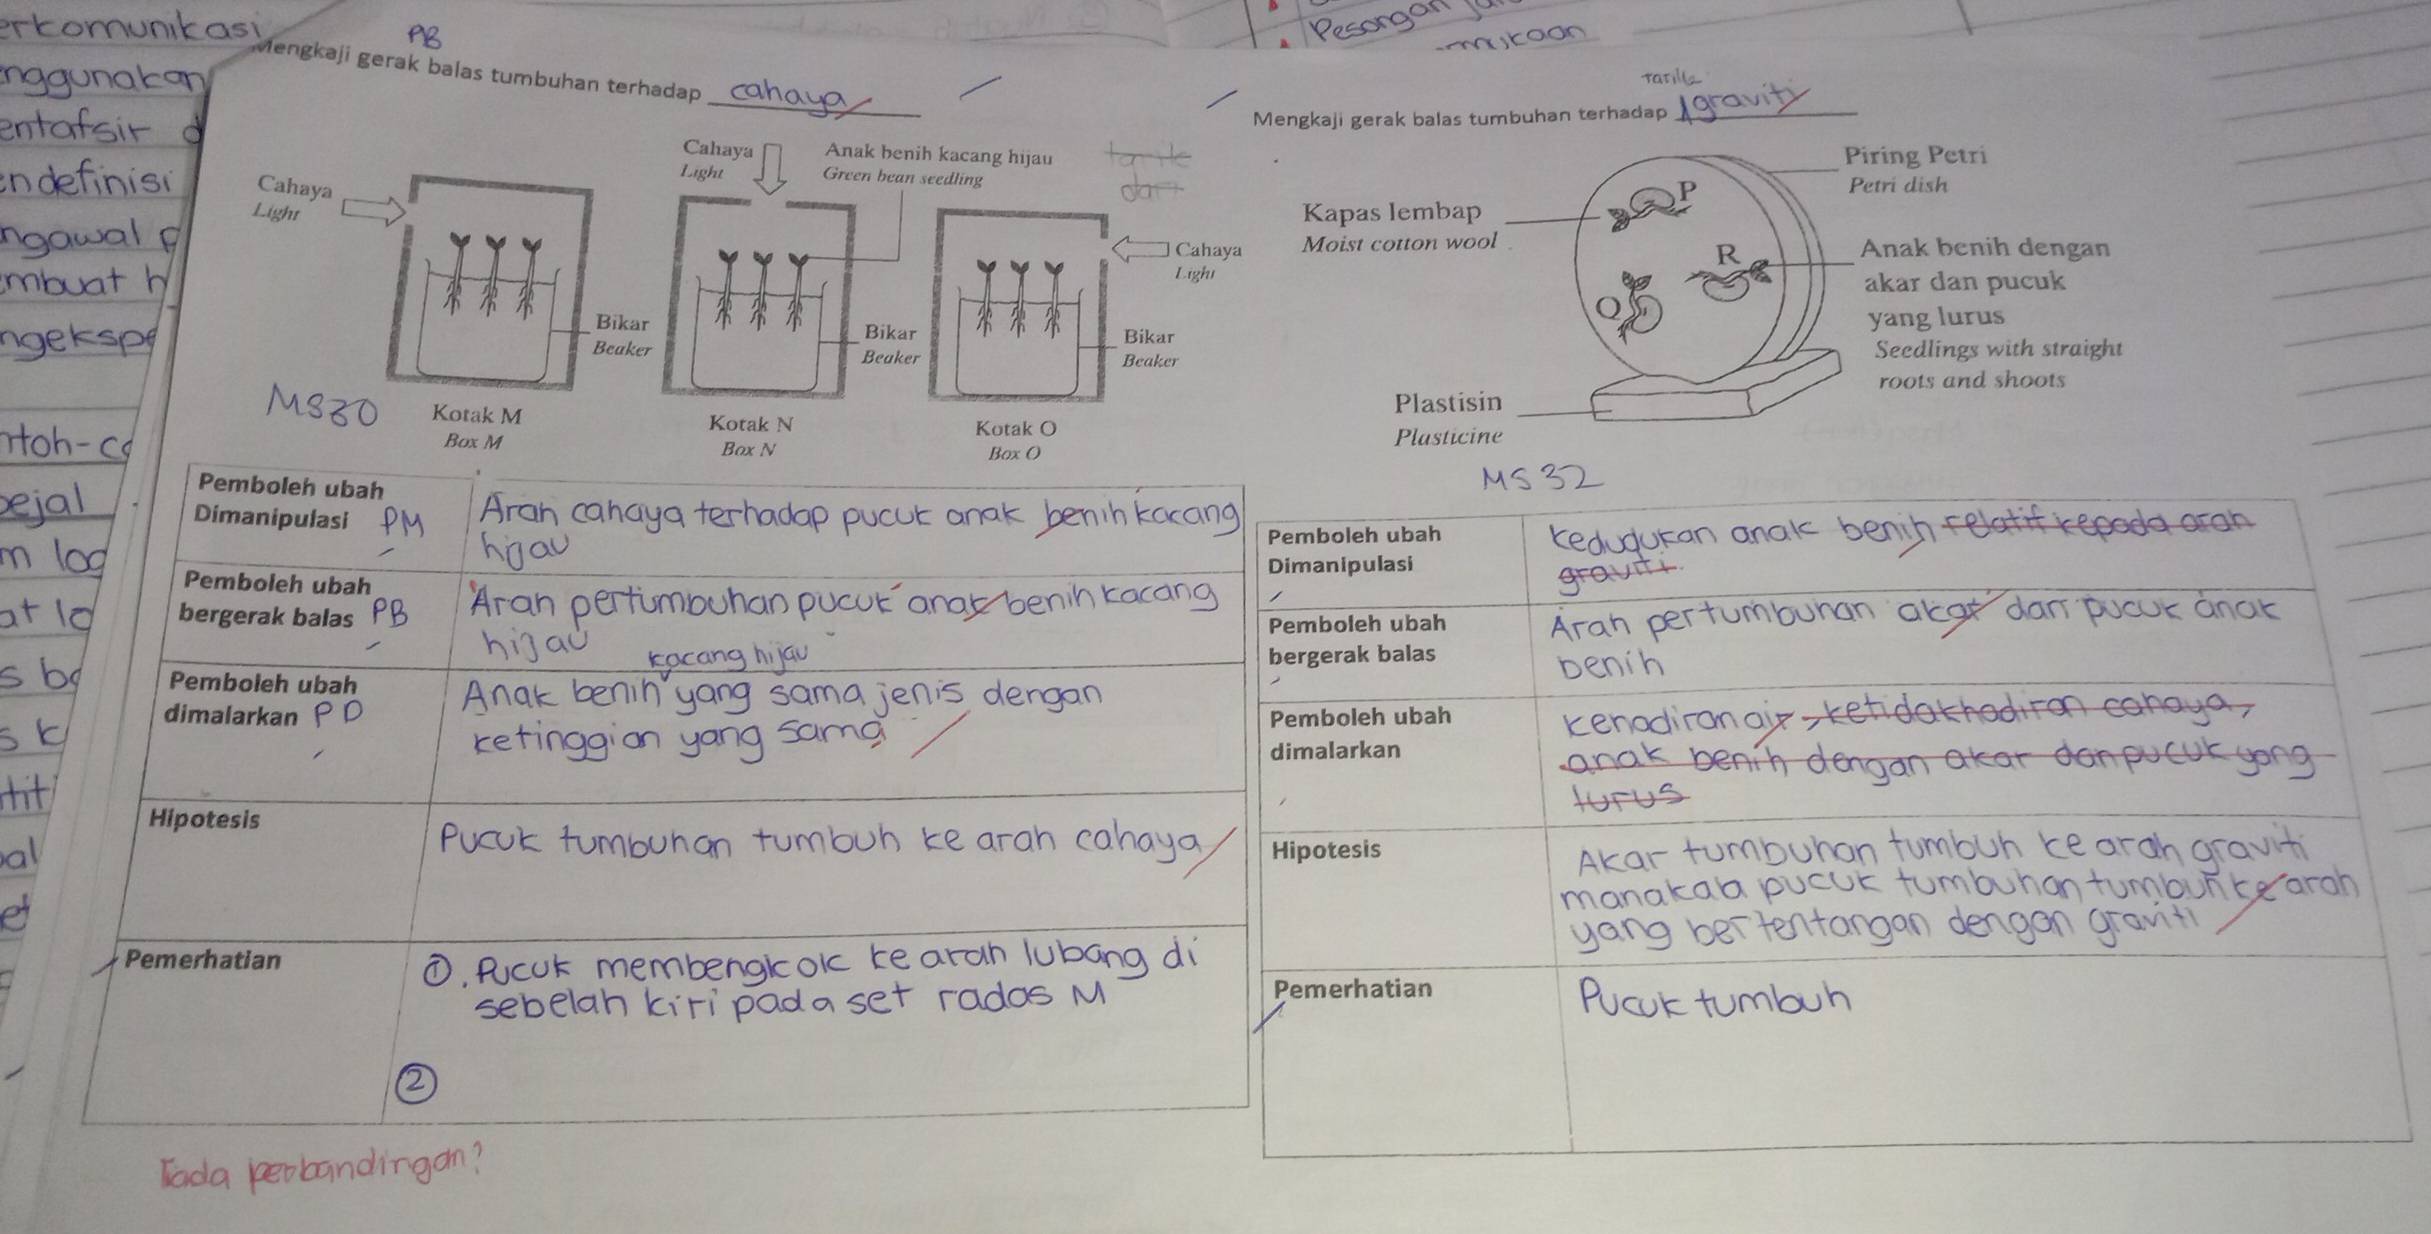 erkomunikasi
nggunakan
entafsir d
endefinisi
ngawal p
embuat h
ngekspe
ntoh-co
bejal
m log
at lo
s ba
s k
tit
al
et
Pesongan
mukaan
PB
Mengkaji gerak balas tumbuhan terhadap cahaya
Cahaya
Light
Cahaya
Light
Anak benih kacang hijau
Green bean seedling
Cahaya
Light
Bikar
Beaker
Bikar
Beaker
Bikar
Beaker
MS30
Kotak M
Box M
Kotak N
Box N
Kotak O
Box O
Pemboleh ubah
Dimanipulasi PM
Arah cahaya terhadap pucuk anak benih kacang
hijau
Pemboleh ubah
bergerak balas PB
Arah pertumbuhan pucuk anak benih kacang
hijau
Pemboleh ubah
dimalarkan PD
kacang hijau
Anak benih yang sama jenis dengan
ketinggian yang sama
Hipotesis
Pucuk tumbuhan tumbuh ke arah cahaya
Pemerhatian
①. Pucuk membengkok ke arah lubang di
sebelah kiri pada set radas M
②
Tada perbandingan?
Mengkaji gerak balas tumbuhan terhadap graviti
Piring Petri
Petri dish
Kapas lembap
Moist cotton wool
P
R
Q
Anak benih dengan
akar dan pucuk
yang lurus
Seedlings with straight
roots and shoots
Plastisin
Plasticine
MS 32
Pemboleh ubah
Dimanipulasi
Kedudukan anak benih relatif kepada arah
graviti.
Pemboleh ubah
bergerak balas
Arah pertumbuhan akar dan pucuk anak
benih
Pemboleh ubah
dimalarkan
Kehadiran air, ketidakhadiran cahaya,
anak benih dengan akar dan pucuk yang
lurus
Hipotesis
Akar tumbuhan tumbuh ke arah graviti
manakala pucuk tumbuhan tumbuh ke arah
yang bertentangan dengan graviti
Pemerhatian
Pucuk tumbuh